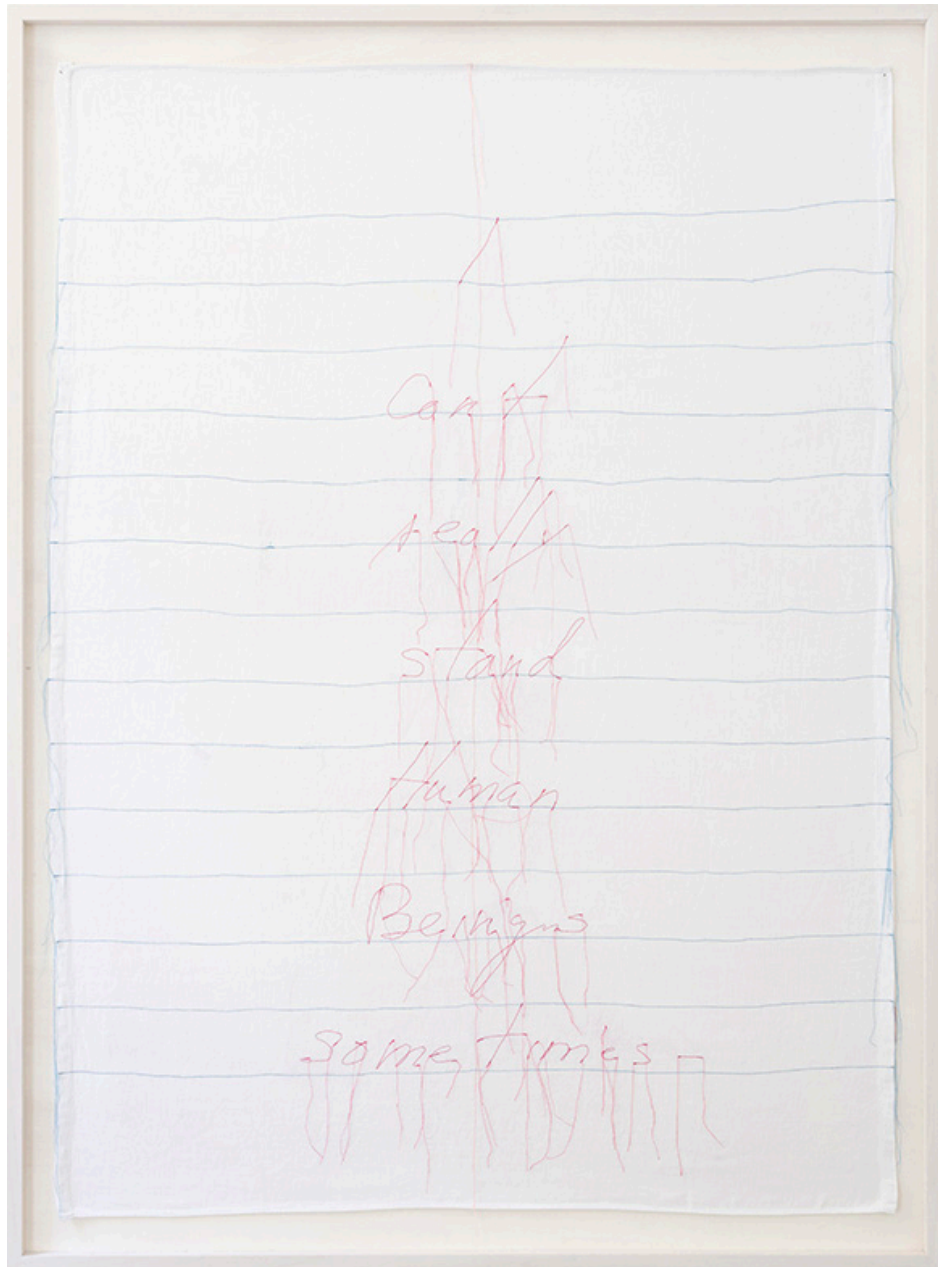 I
Cant
really
stand
Human
Benigns
sometimes